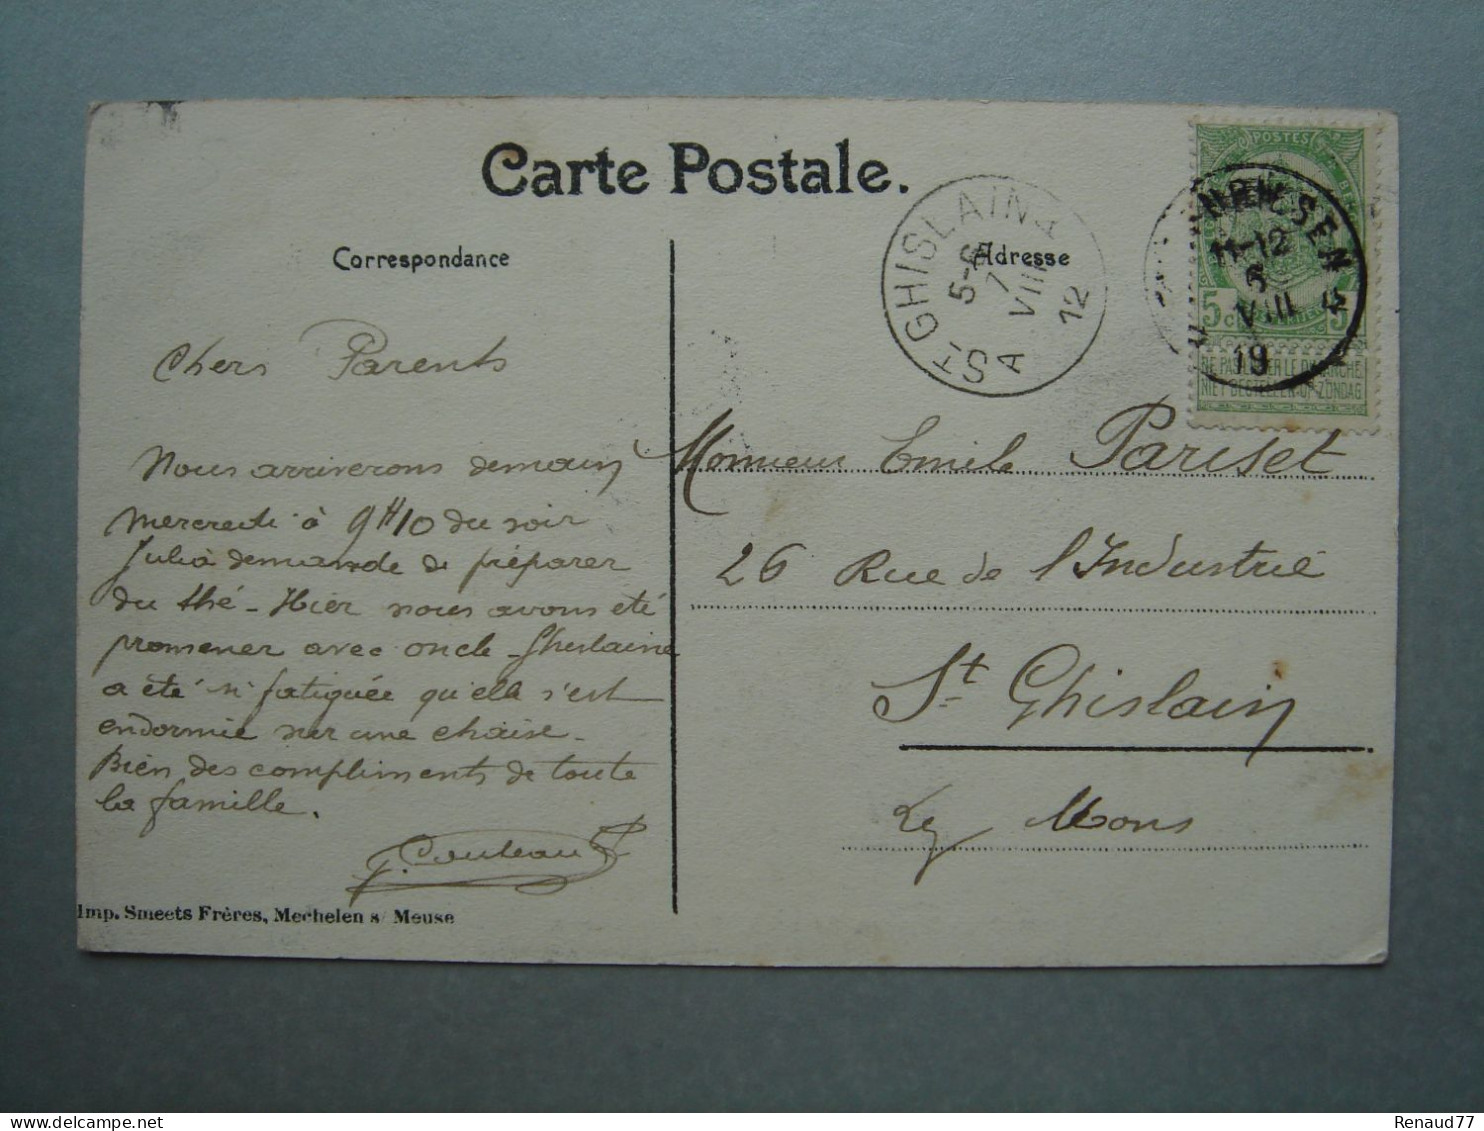 Carte Postale.
Correspondance
Adresse
ST-GHISLAIN
5-6
7
VIII
12
A A
11-12
6
VIII
19
POSTES
5c
5
NIET BESTELLEN OP ZONDAG
Chers Parents
Nous arriverons demain
mercredi à 9H10 du soir
Julia demande de préparer
du thé - Hier nous avons été
promener avec oncle - Ghislaine
a été si fatiguée qu'elle s'est
endormie sur une chaise -
Bien des compliments de toute
la famille.
Monsieur Emile Pariset
26 Rue de l'Industrie
St Ghislain
Lez Mons
Imp. Smeets Frères, Mechelen s/ Meuse
Renaud77